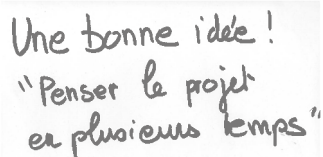 Une bonne idée !
"Penser le projet
en plusieurs temps"